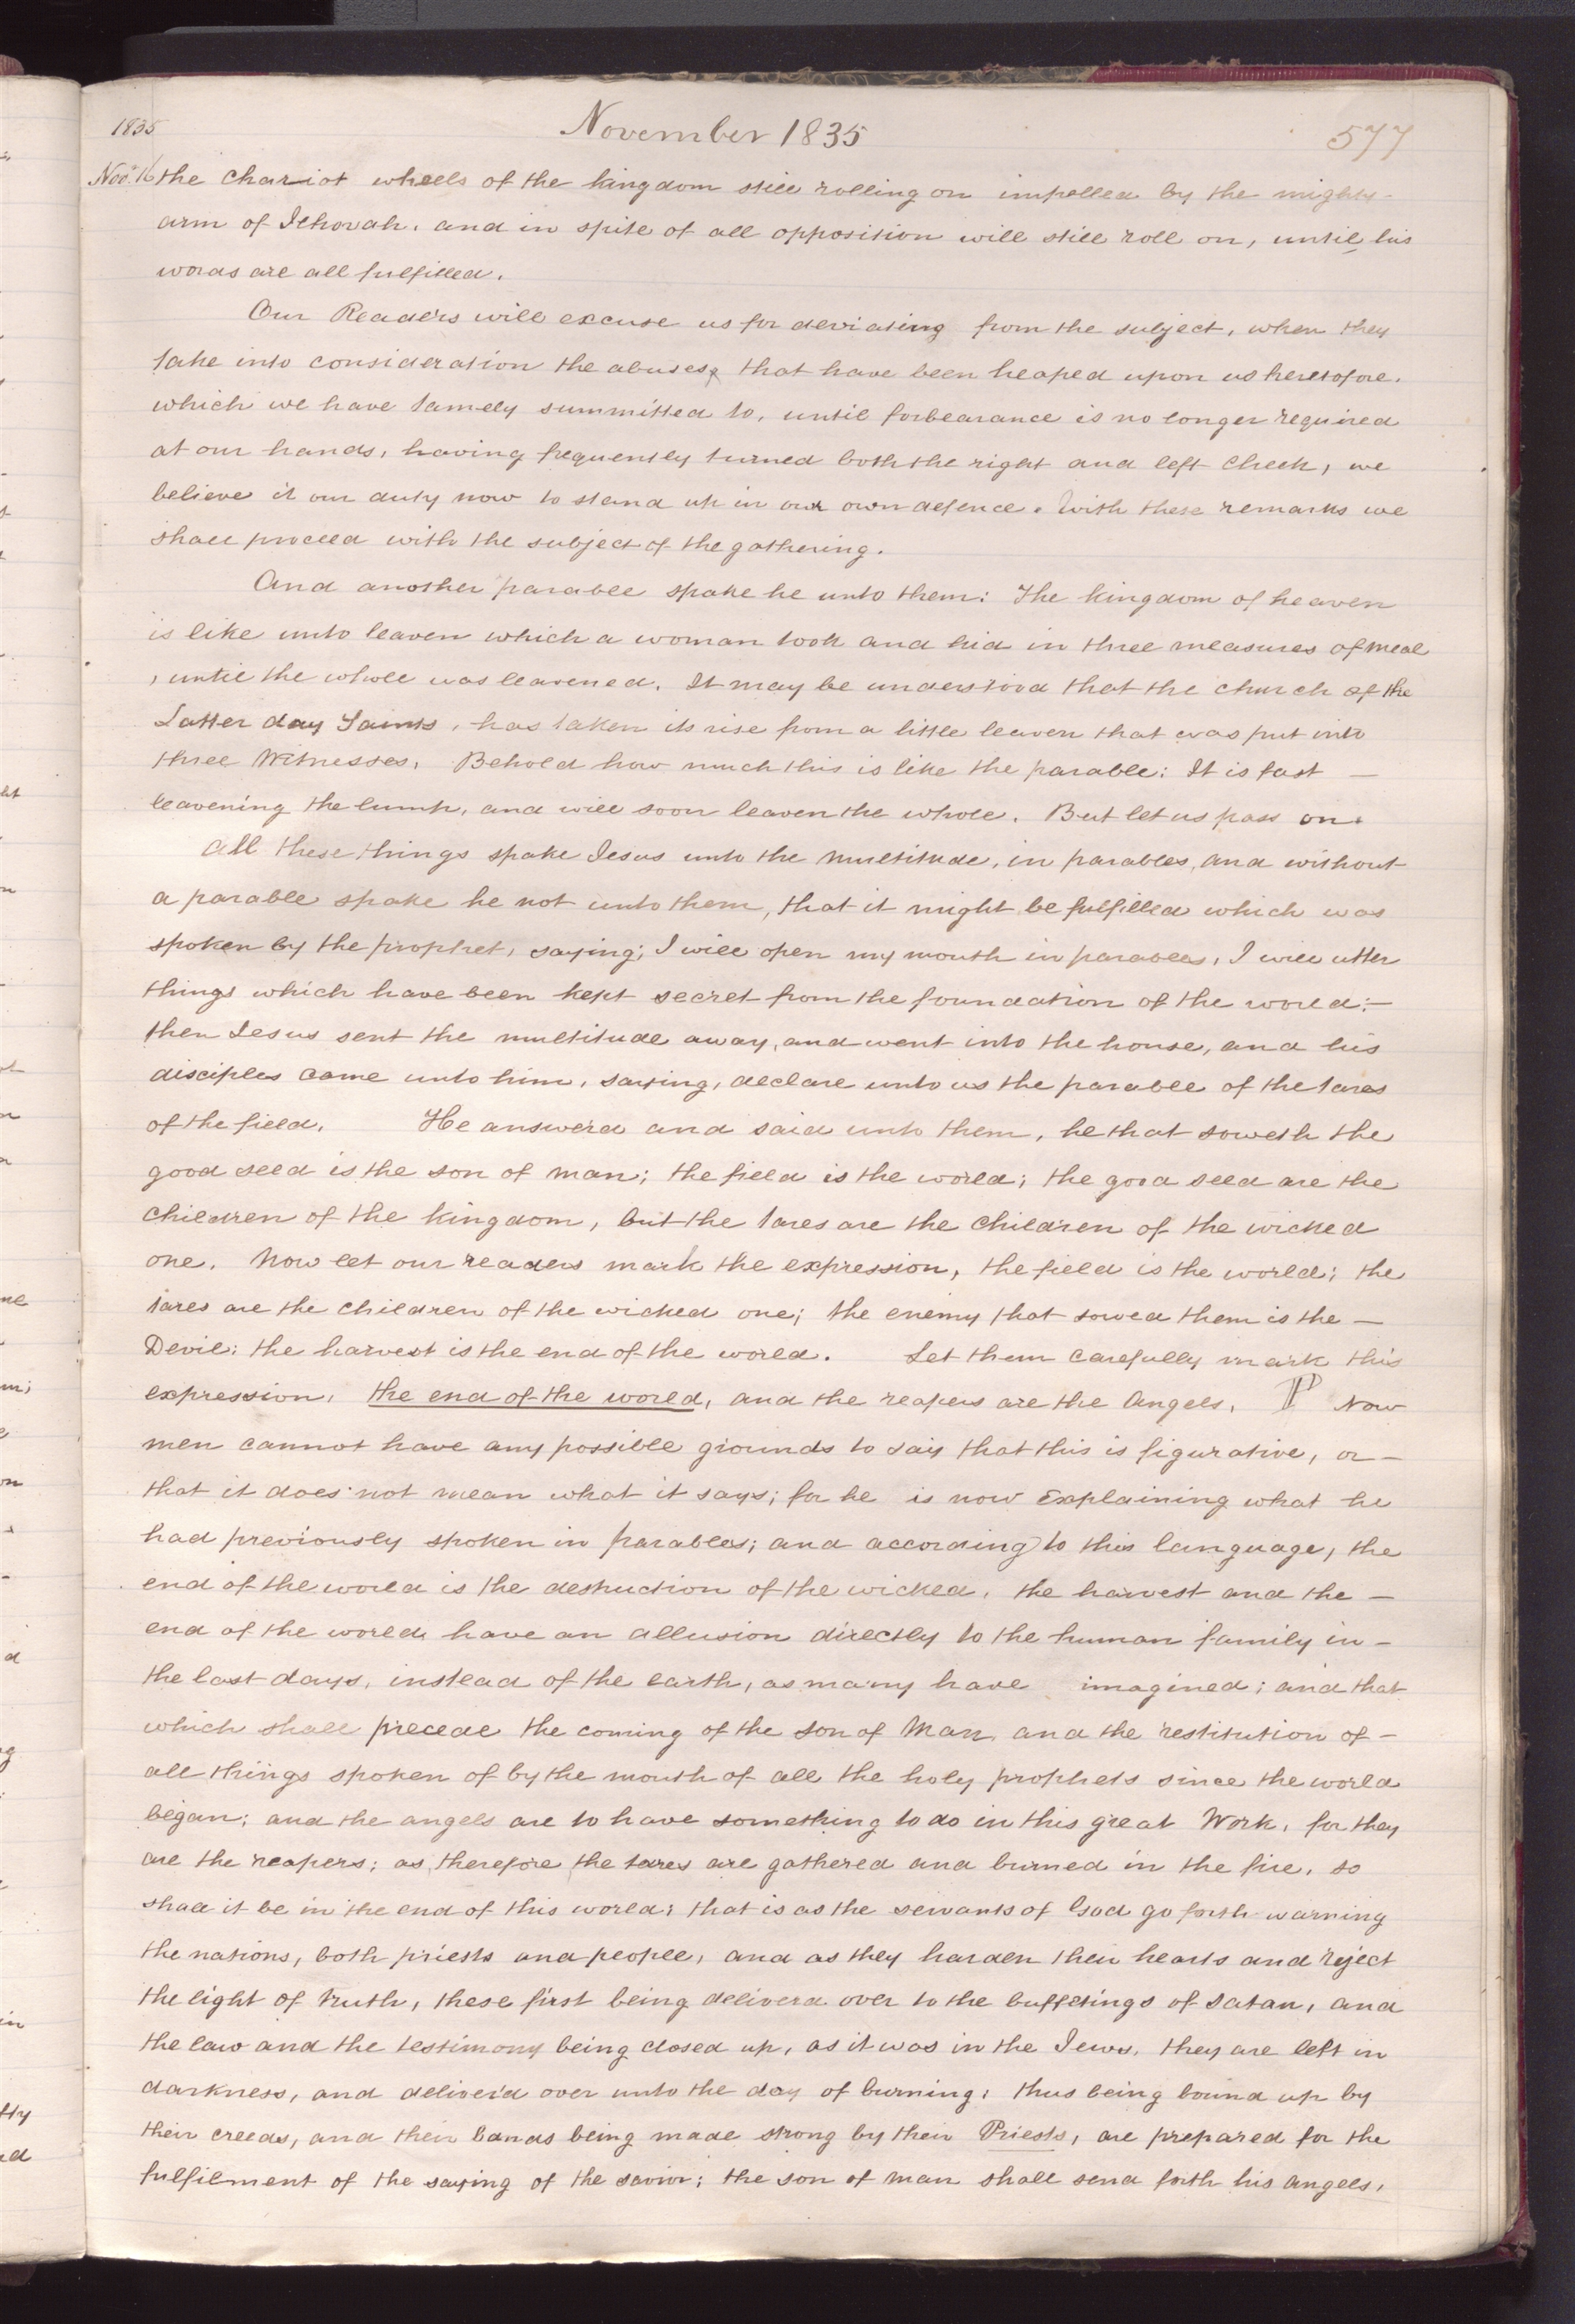 1835
November 1835
577
Nov. 16 the chariot wheels of the kingdom still rolling on impelled by the mighty
arm of Jehovah, and in spite of all opposition will still roll on, until his
words are all fulfilled.
Our Readers will excuse us for deviating from the subject, when they
take into consideration the abuses, that have been heaped upon us heretofore.
which we have tamely summitted to, until forbearance is no longer required
at our hands, having frequently turned both the right and left cheek, we
believe it our duty now to stand up in our own defence. With these remarks we
shall proceed with the subject of the gathering.
And another parable spake he unto them: The kingdom of heaven
is like unto leaven which a woman took and hid in three measures of meal
, until the whole was leavened. It may be understood that the church of the
Latter day Saints, has taken its rise from a little leaven that was put into
three Witnesses, Behold how much this is like the parable: It is fast —
leavening the lump, and will soon leaven the whole. But let us pass on.
All these things spake Jesus unto the multitude, in parables, and without
a parable spake he not unto them, that it might be fulfilled which was
spoken by the prophet, saying; I will open my mouth in parables, I will utter
things which have been kept secret from the foundation of the world:—
then Jesus sent the multitude away, and went into the house, and his
disciples came unto him, saying, declare unto us the parable of the tares
of the field. He answerd and said unto them, he that soweth the
good seed is the son of man; the field is the world; the good seed are the
children of the kingdom, but the tares are the children of the wicked
one. Now let our readers mark the expression, the field is the world; the
tares are the children of the wicked one; the enemy that sowed them is the —
Devil; the harvest is the end of the world. Let them carefully mark this
expression, the end of the world, and the reapers are the Angels. ¶ Now
men cannot have any possible grounds to say that this is figurative, or —
that it does not mean what it says; for he is now explaining what he
had previously spoken in parables; and according to this language, the
end of the world is the destruction of the wicked, the harvest and the —
end of the world have an allusion directly to the human family in —
the last days, instead of the earth, as many have imagined; and that
which shall precede the coming of the son of Man, and the restitution of —
all things spoken of by the mouth of all the holy prophets since the world
began; and the angels are to have something to do in this great Work, for they
are the reapers; as therefore the tares are gathered and burned in the fire, so
shall it be in the end of this world; that is as the servants of God go forth warning
the nations, both priests and people, and as they harden their hearts and reject
the light of truth, these first being deliverd over to the buffetings of satan, and
the law and the testimony being closed up, as it was in the Jews, they are left in
darkness, and deliver'd over unto the day of burning; thus being bound up by
their creeds, and their bands being made strong by their Priests, are prepared for the
fulfilment of the saying of the savior; the son of man shall send forth his angels,